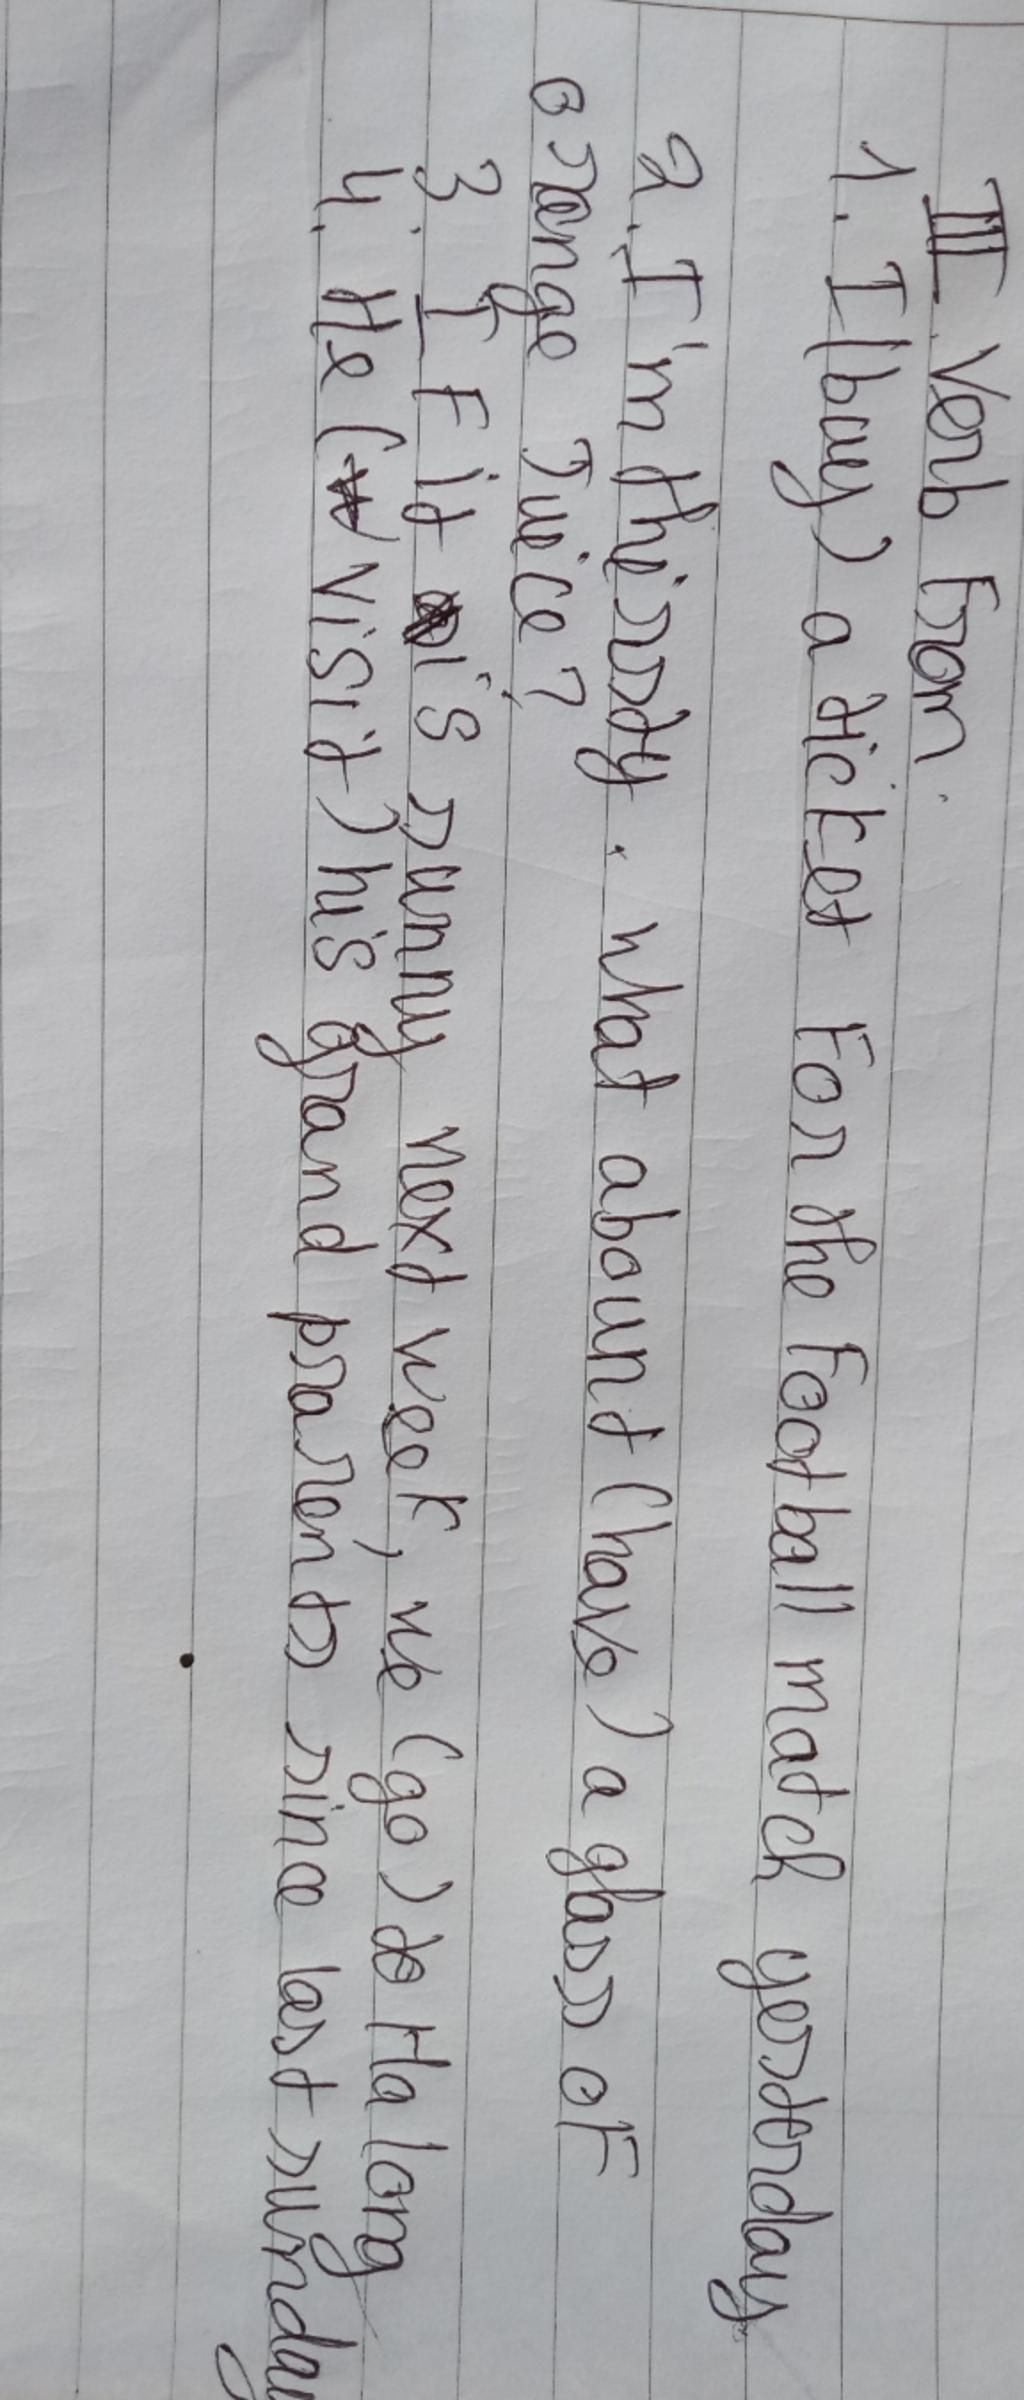 III. Verb From.
1. I (buy) a ticket For the Football match yesterday.
2. I'm thirsty. what abount (have) a glass of
orange Juice?
3. IF it is sunny next week, we (go) to Ha long
4. He (visit) his grand prarents since last sunday